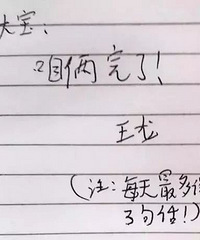 大宝:
咱俩完了!
王龙
(注:每天最多
3句话!)